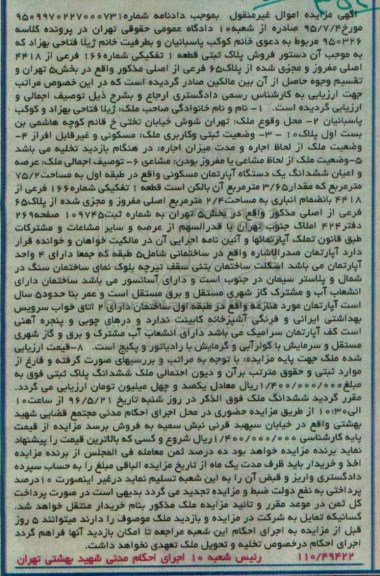 آگهی مزایده اموال غیرمنقول بموجب دادنامه شماره ۹۵۰۹۹۷۰۲۲۷۰۰۰۷۳۱
مورخ ۹۵/۷/۴ صادره از شعبه ۱۰ دادگاه عمومی حقوقی تهران در پرونده کلاسه
۹۵۰۳۲۶ مربوط به دعوی خانم کوکب پاسبانیان و بطرفیت خانم ژیلا فتاحی بهزاد که
به موجب آن دستور فروش پلاک ثبتی قطعه ۱ تفکیکی شماره ۱۶۶ فرعی از ۴۴۱۸
اصلی مفروز و مجزی شده از پلاک ۶۵ فرعی از اصلی مذکور واقع در بخش ۵ تهران و
تقسیم وجوه حاصل از آن بین مالکین صادر گردیده است که در این خصوص مراتب
جهت ارزیابی به کارشناس رسمی دادگستری ارجاع و بشرح ذیل توصیف اجمالی و
ارزیابی گردیده است. ۱- نام و نام خانوادگی صاحب ملک: ژیلا فتاحی بهزاد و کوکب
پاسبانیان ۲- محل وقوع ملک: تهران شوش خیابان تختی خ قائم کوچه هاشمی بن
بست اول پلاک ۱۰ ۳- وضعیت ثبتی وکاربری ملک: مسکونی و غیرقابل افراز ۴-
وضعیت ملک از لحاظ اجاره و مدت میزان اجاره: در هنگام بازدید تخلیه می باشد
۵- وضعیت ملک از لحاظ مشاعی یا مفروز بودن: مشاعی ۶- توصیف اجمالی ملک: عرصه
و اعیان ششدانگ یک دستگاه آپارتمان مسکونی واقع در طبقه اول به مساحت ۷۵/۲
مترمربع که مقدار ۳/۶۵ مترمربع آن بالکن است قطعه ۱ تفکیکی شماره ۱۶۶ فرعی از
۴۴۱۸ بانضمام انباری به مساحت ۲/۴ مترمربع اصلی مفروز و مجزی شده از پلاک ۶۵
فرعی از اصلی مذکور واقع در بخش ۵ تهران به شماره ثبت ۱۰۹۷۴۵ صفحه ۲۶۹
دفتر ۴۲۴ املاک جنوب تهران با قدرالسهم از عرصه و سایر مشاعات و مشترکات
طبق قانون تملک آپارتمانها و آئین نامه اجرایی آن در مالکیت خواهان و خوانده قرار
دارد آپارتمان صدرالاشاره واقع در ساختمانی شامل ۵ طبقه که جمعا دارای ۴ واحد
آپارتمان می باشد اسکلت ساختمان بتنی سقف تیرچه بلوک نمای ساختمان سنگ در
شمال و پلاستر سیمان در جنوب است و دارای آسانسور می باشد ساختمان دارای
انشعاب آب و مشترک گاز شهری مستقل و برق مستقل است و عمر بنا حدود ۵ سال
است آپارتمان مورد منازعه واقع در طبقه اول ساختمان دارای ۲ اتاق خواب سرویس
بهداشتی ایرانی و فرنگی آشپزخانه کابینت ندارد و درهای چوبی و پنجره آهنی
است کف آپارتمان سرامیک می باشد دارای انشعاب آب مشترک و برق و گاز شهری
مستقل و سرمایش با کولرآبی و گرمایش با رادیاتور و پکیج است. ۸-قیمت ارزیابی
شده ملک جهت پایه مزایده: با توجه به مراتب و بررسیهای صورت گرفته و فارغ از
موارد ثبتی و حقوق مترتب برآن و دیون احتمالی ملک ششدانگ پلاک ثبتی فوق به
مبلغ ۱/۴۰۰/۰۰۰/۰۰۰ ریال معادل یکصد و چهل میلیون تومان ارزیابی می گردد.
مقرر گردید ششدانگ ملک فوق الذکر در روز شنبه تاریخ ۹۶/۵/۲۱ از ساعت ۱۰
الی ۱۰:۳۰ از طریق مزایده حضوری در محل اجرای احکام مدنی مجتمع قضایی شهید
بهشتی واقع در خیابان سپهبد قرنی نبش سمیه به فروش برسد مزایده از قیمت
پایه کارشناسی ۱/۴۰۰/۰۰۰/۰۰۰ ریال شروع و کسی که بالاترین قیمت را پیشنهاد
نماید برنده مزایده خواهد بود ده درصد ثمن معامله فی المجلس از برنده مزایده
اخذ و خریدار باید ظرف مدت یک ماه از تاریخ مزایده الباقی مبلغ را به حساب سپرده
دادگستری واریز و قبض آن را به این شعبه تسلیم نماید درغیر اینصورت ۱۰ درصد
پرداختی به نفع دولت ضبط و مزایده تجدید می گردد بدیهی است در صورت پرداخت
کل ثمن در موعد مقرر و تائید مزایده ملک مذکور بنام خریدار منتقل خواهد شد.
کسانیکه تمایل به شرکت در مزایده و بازدید ملک موصوف را دارند میتوانند ۵ روز
قبل از مزایده به اجرای احکام این شعبه مراجعه تا امکان بازدید آنها فراهم گردد
اجرای احکام درخصوص تخلیه و تحویل ملک تعهدی نخواهد داشت.
۱۱۰/۴۹۴۲۲ رئیس شعبه ۱۰ اجرای احکام مدنی شهید بهشتی تهران